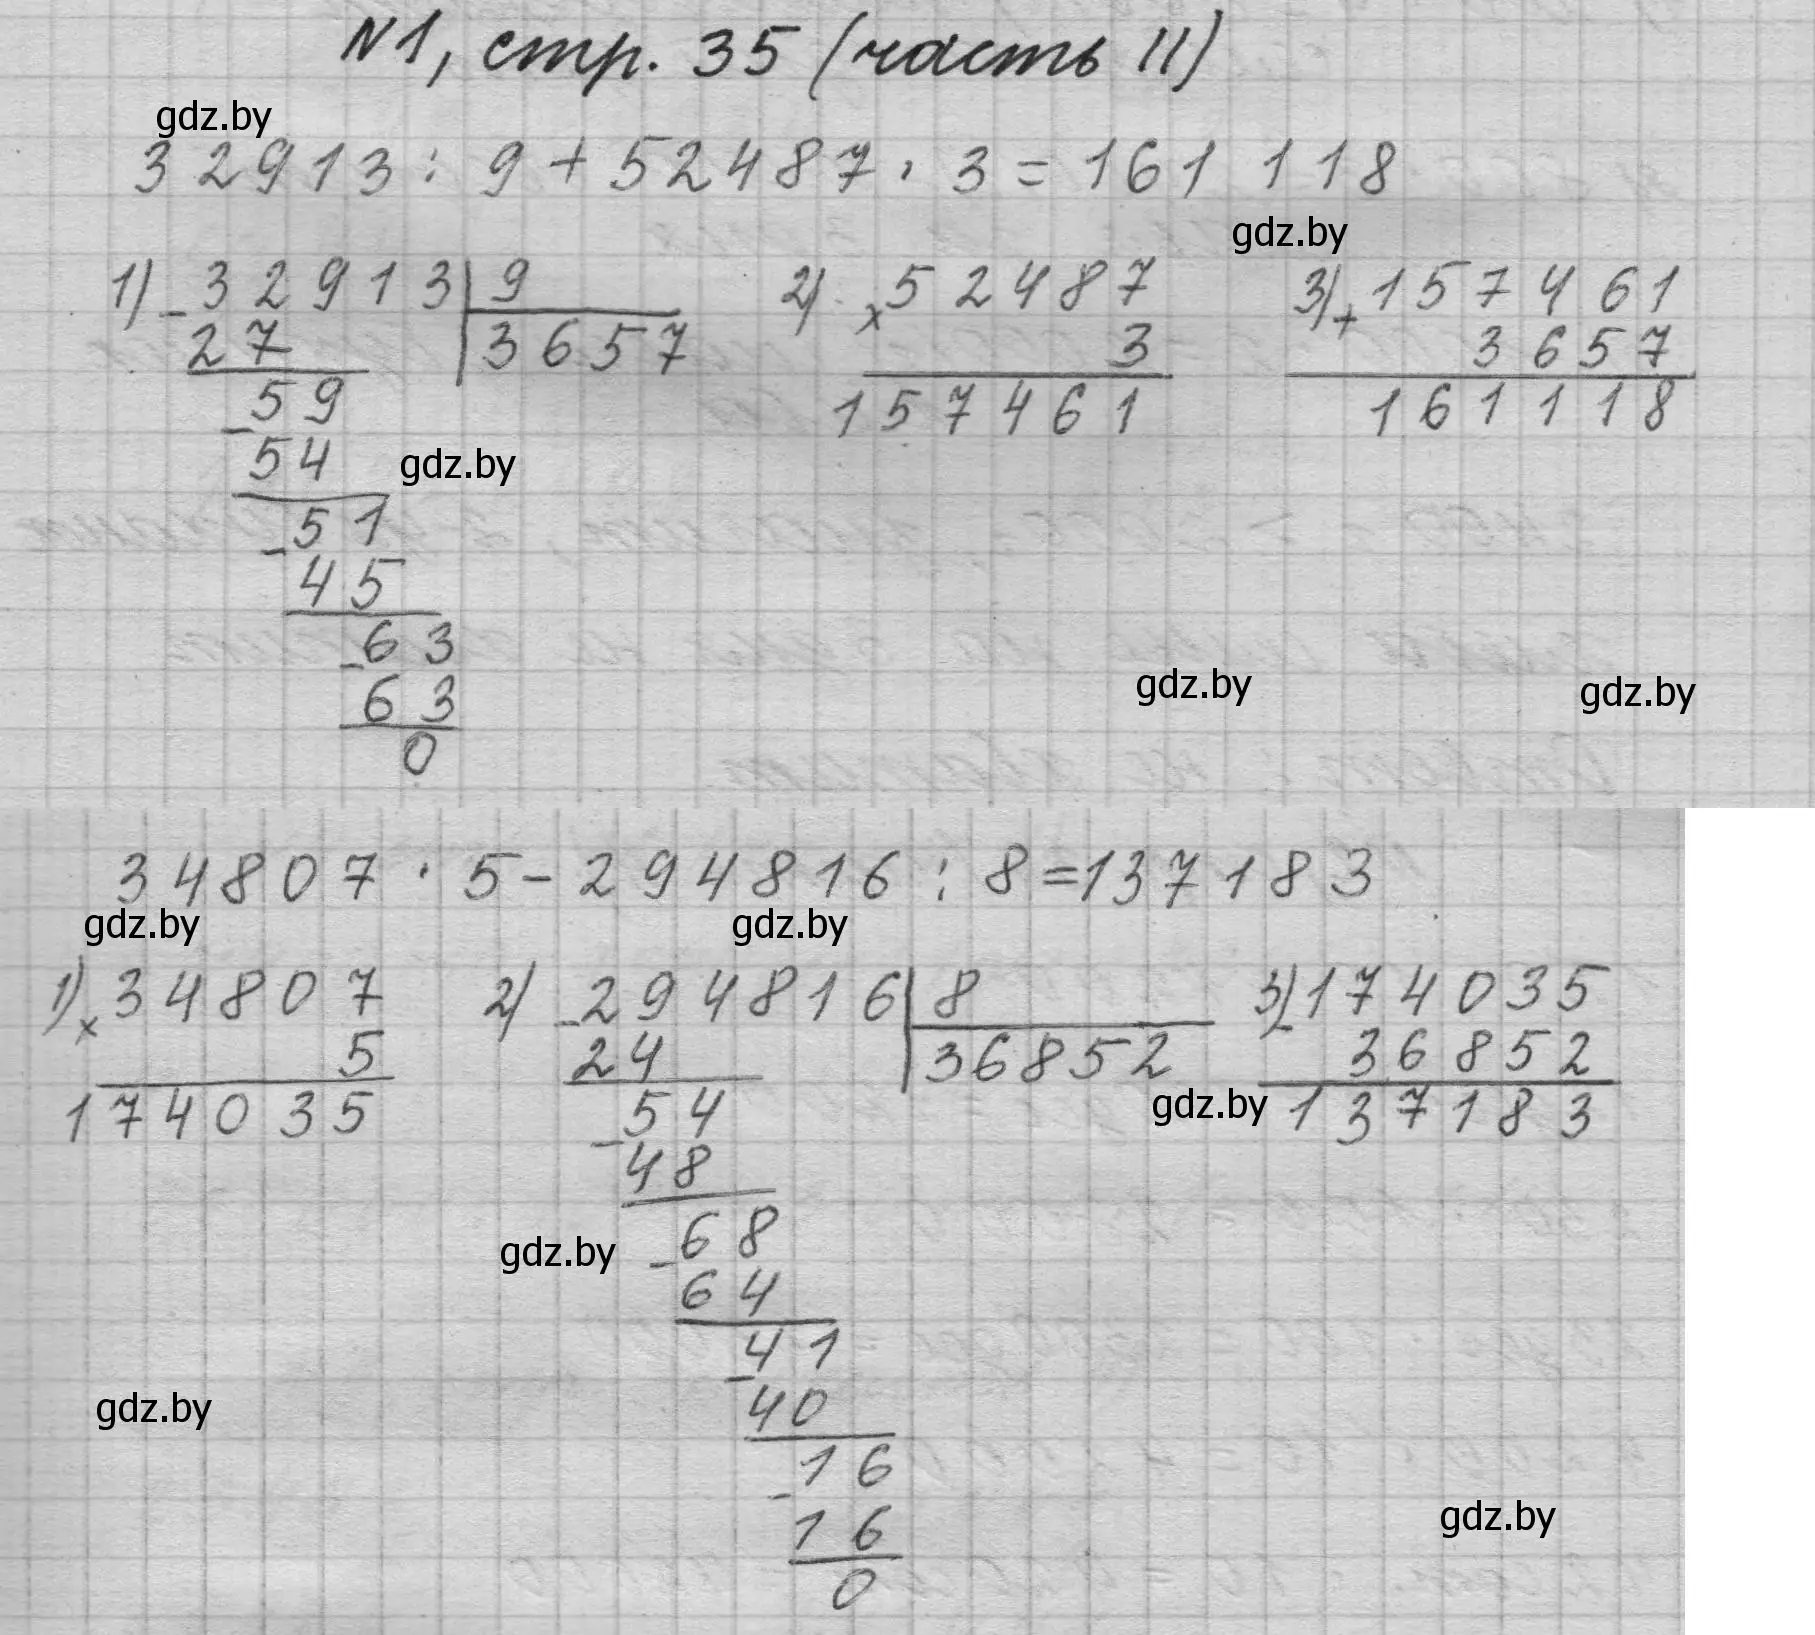 N1, стр. 35 (часть II)
gdz.by
32913 : 9 + 52487 · 3 = 161 118
gdz.by
1) - 32913 | 9
27 | 3657
- 59
54
gdz.by
- 51
45
- 63
63
0
2) × 52487
3
157461
3) + 157461
3657
161118
gdz.by
gdz.by
34807 · 5 - 294816 : 8 = 137183
gdz.by
gdz.by
1) × 34807
5
174035
2) - 294816 | 8
24 | 36852
- 54
48
- 68
64
- 41
40
- 16
16
0
3) - 174035
36852
137183
gdz.by
gdz.by
gdz.by
gdz.by